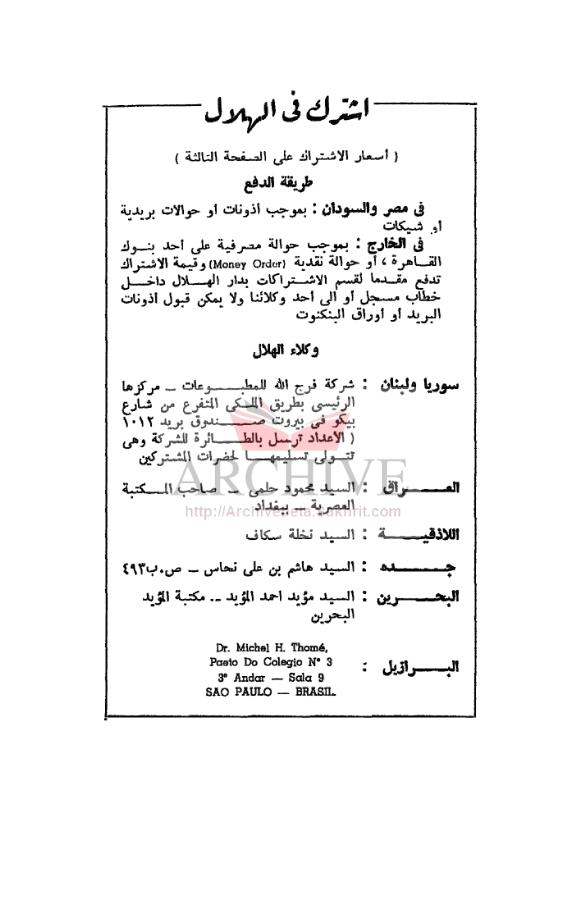 اشترك في الهلال
( أسعار الاشتراك على الصفحة الثالثة )
طريقة الدفع
في مصر والسودان : بموجب أذونات أو حوالات بريدية
أو شيكات
في الخارج : بموجب حوالة مصرفية على أحد بنوك
القاهرة ، أو حوالة نقدية (Money Order) وقيمة الاشتراك
تدفع مقدما لقسم الاشتراكات بدار الهلال داخل
خطاب مسجل أو الى أحد وكلائنا ولا يمكن قبول أذونات
البريد أو أوراق البنكنوت
وكلاء الهلال
سوريا ولبنان : شركة فرج الله للمطبوعات ــ مركزها
الرئيسى بطريق الملكى المتفرع من شارع
بيكو فى بيروت صندوق بريد ١٠١٢
( الأعداد ترسل بالطائرة للشركة وهى
تتولى تسليمها لحضرات المشتركين
العراق : السيد محمود حلمى ــ صاحب المكتبة
العصرية ــ ببغداد
اللاذقية : السيد نخلة سكاف
جده : السيد هاشم بن على نحاس ــ ص.ب ٤٩٣
البحرين : السيد مؤيد احمد المؤيد ــ مكتبة المؤيد
البحرين
البرازيل :
Dr. Michel H. Thomé,
Paeto Do Colegio N° 3
3° Andar — Sala 9
SAO PAULO — BRASIL.
ARCHIVE
http://Archivebeta.Sakhrit.com